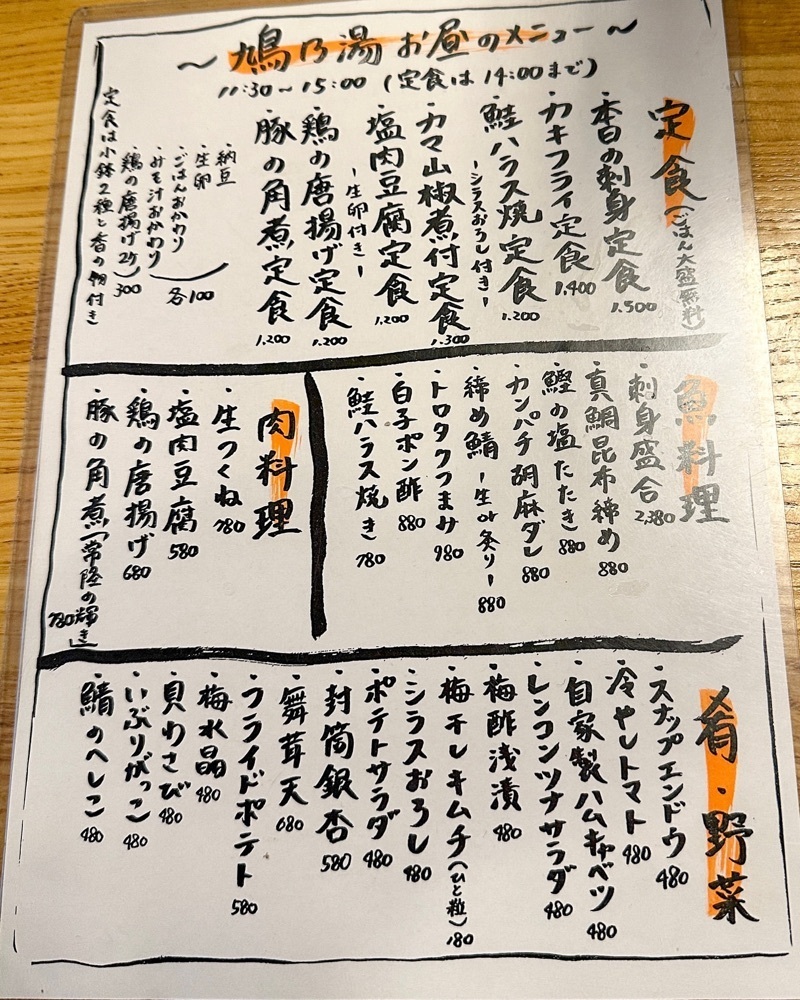 ～鳩乃湯 お昼のメニュー～
11:30～15:00 (定食は14:00まで)
定食(ごはん大盛無料)
・本日の刺身定食 1,500
・カキフライ定食 1,400
・鮭ハラス焼定食 1,200
-シラスおろし付き-
・カマ山椒煮付定食 1,300
・塩肉豆腐定食 1,200
-生卵付き-
・鶏の唐揚げ定食 1,200
・豚の角煮定食 1,200
・納豆
・生卵
・ごはんおかわり
・みそ汁おかわり
各100
・鶏の唐揚げ2ケ 300
定食は小鉢2種と香の物付き
魚料理
・刺身盛合 2,380
・真鯛昆布締め 880
・鰹の塩たたき 880
・カンパチ胡麻ダレ 880
・締め鯖 -生or炙り- 880
・トロタクつまみ 980
・白子ポン酢 880
・鮭ハラス焼き 780
肉料理
・生つくね 780
・塩肉豆腐 580
・鶏の唐揚げ 680
・豚の角煮(常陸の輝き 780
肴・野菜
・スナップエンドウ 480
・冷やしトマト 480
・自家製ハムキャベツ 480
・レンコンツナサラダ 480
・梅酢浅漬 480
・梅干しキムチ(ひと粒) 180
・シラスおろし 480
・ポテトサラダ 480
・封筒銀杏 580
・舞茸天 680
・フライドポテト 580
・梅水晶 480
・貝わさび 480
・いぶりがっこ 480
・鯖のへしこ 480